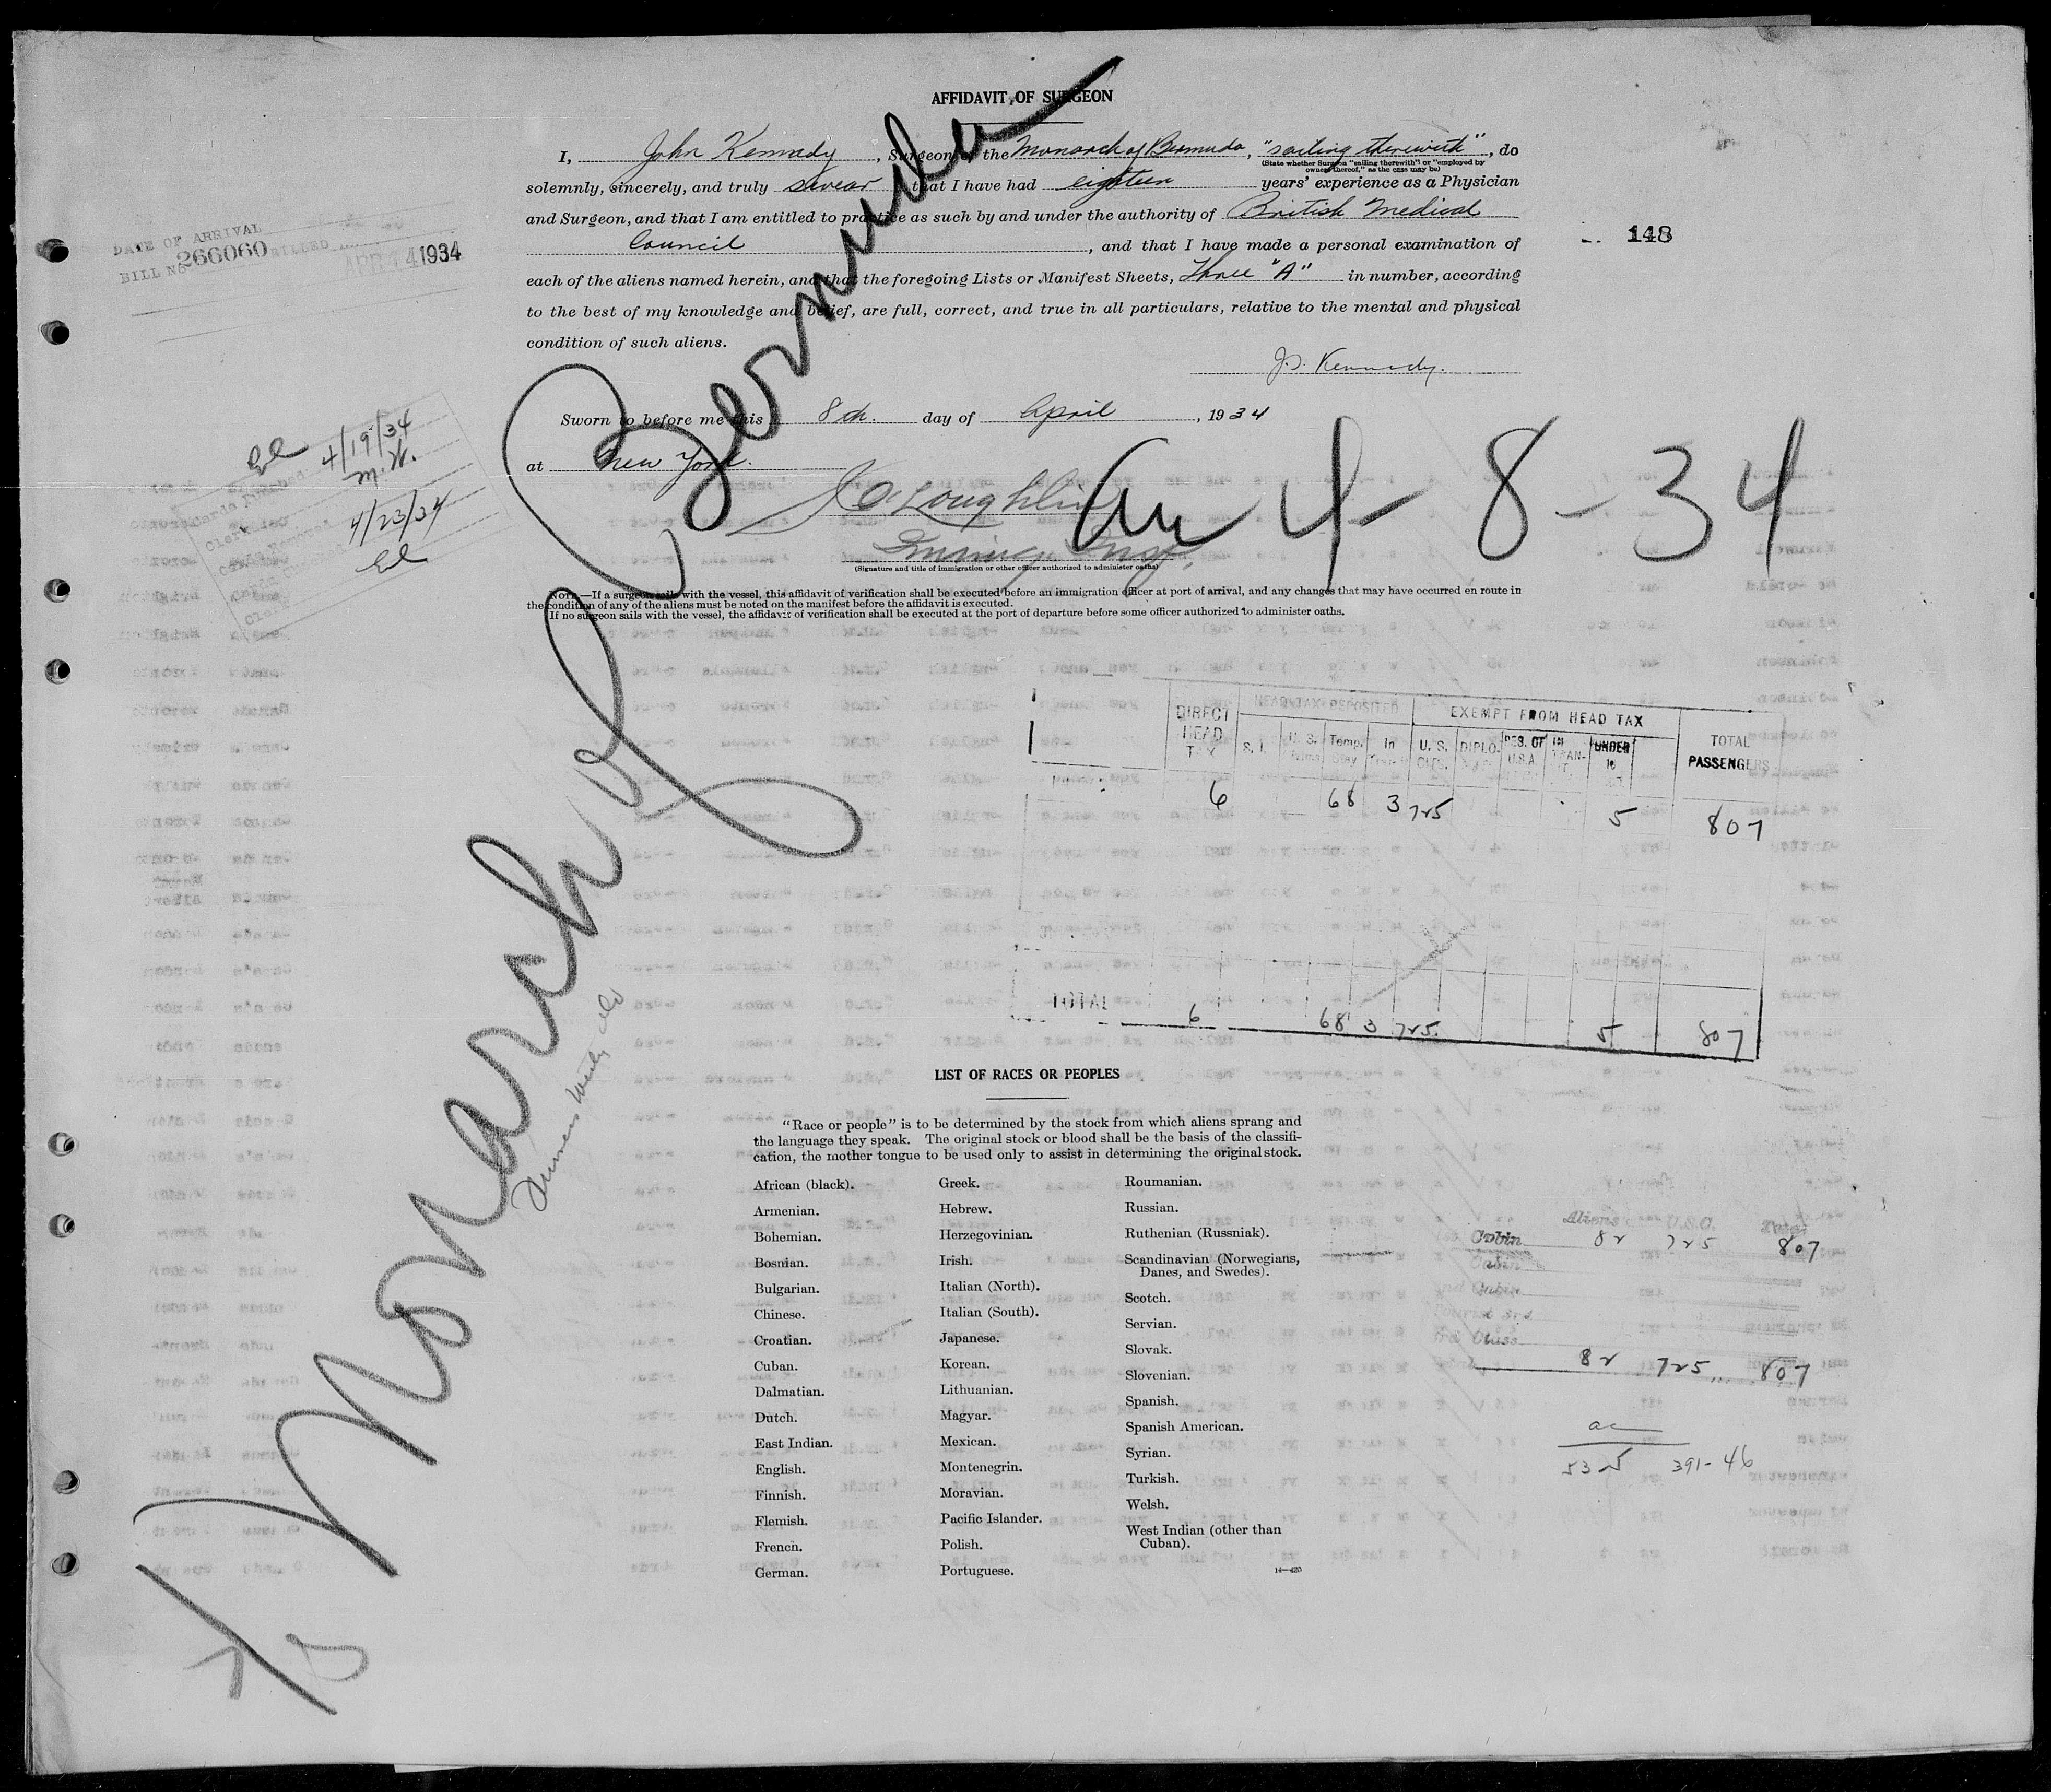 AFFIDAVIT OF SURGEON
I, John Kennedy, Surgeon of the Monarch of Bermuda, "sailing therewith", do
(State whether Surgeon "sailing therewith" or "employed by
owners thereof," as the case may be)
solemnly, sincerely, and truly swear that I have had eighteen years' experience as a Physician
and Surgeon, and that I am entitled to practice as such by and under the authority of British Medical
Council, and that I have made a personal examination of
each of the aliens named herein, and that the foregoing Lists or Manifest Sheets, Three "A" in number, according
to the best of my knowledge and belief, are full, correct, and true in all particulars, relative to the mental and physical
condition of such aliens.
J. Kennedy.
148
DATE OF ARRIVAL
BILL No 266060 BILLED APR 14 1934
Sworn to before me this 8th. day of April, 1934
at New York.
4/19/34
M.W.
4/23/34
Immig. Insp.
(Signature and title of immigration or other officer authorized to administer oaths)
4-8-34
NOTE.—If a surgeon sails with the vessel, this affidavit of verification shall be executed before an immigration officer at port of arrival, and any changes that may have occurred en route in
the condition of any of the aliens must be noted on the manifest before the affidavit is executed.
If no surgeon sails with the vessel, the affidavit of verification shall be executed at the port of departure before some officer authorized to administer oaths.
Monarch of Bermuda
DIRECT HEAD TAX
HEAD TAX DEPOSITED
EXEMPT FROM HEAD TAX
TOTAL PASSENGERS
S. I. U. S. Temp. Stay In U. S. CITS. DIPLO. RES. OF U.S.A. IN TRAN-IT. UNDER 16
6 68 3 725 5 807
TOTAL 6 68 3 725 5 807
LIST OF RACES OR PEOPLES
"Race or people" is to be determined by the stock from which aliens sprang and
the language they speak. The original stock or blood shall be the basis of the classifi-
cation, the mother tongue to be used only to assist in determining the original stock.
African (black).
Armenian.
Bohemian.
Bosnian.
Bulgarian.
Chinese.
Croatian.
Cuban.
Dalmatian.
Dutch.
East Indian.
English.
Finnish.
Flemish.
French.
German.
Greek.
Hebrew.
Herzegovinian.
Irish.
Italian (North).
Italian (South).
Japanese.
Korean.
Lithuanian.
Magyar.
Mexican.
Montenegrin.
Moravian.
Pacific Islander.
Polish.
Portuguese.
Roumanian.
Russian.
Ruthenian (Russniak).
Scandinavian (Norwegians,
Danes, and Swedes).
Scotch.
Servian.
Slovak.
Slovenian.
Spanish.
Spanish American.
Syrian.
Turkish.
Welsh.
West Indian (other than
Cuban).
Aliens U.S.C. Total
Cabin 82 725 807
82 725 807
391-46